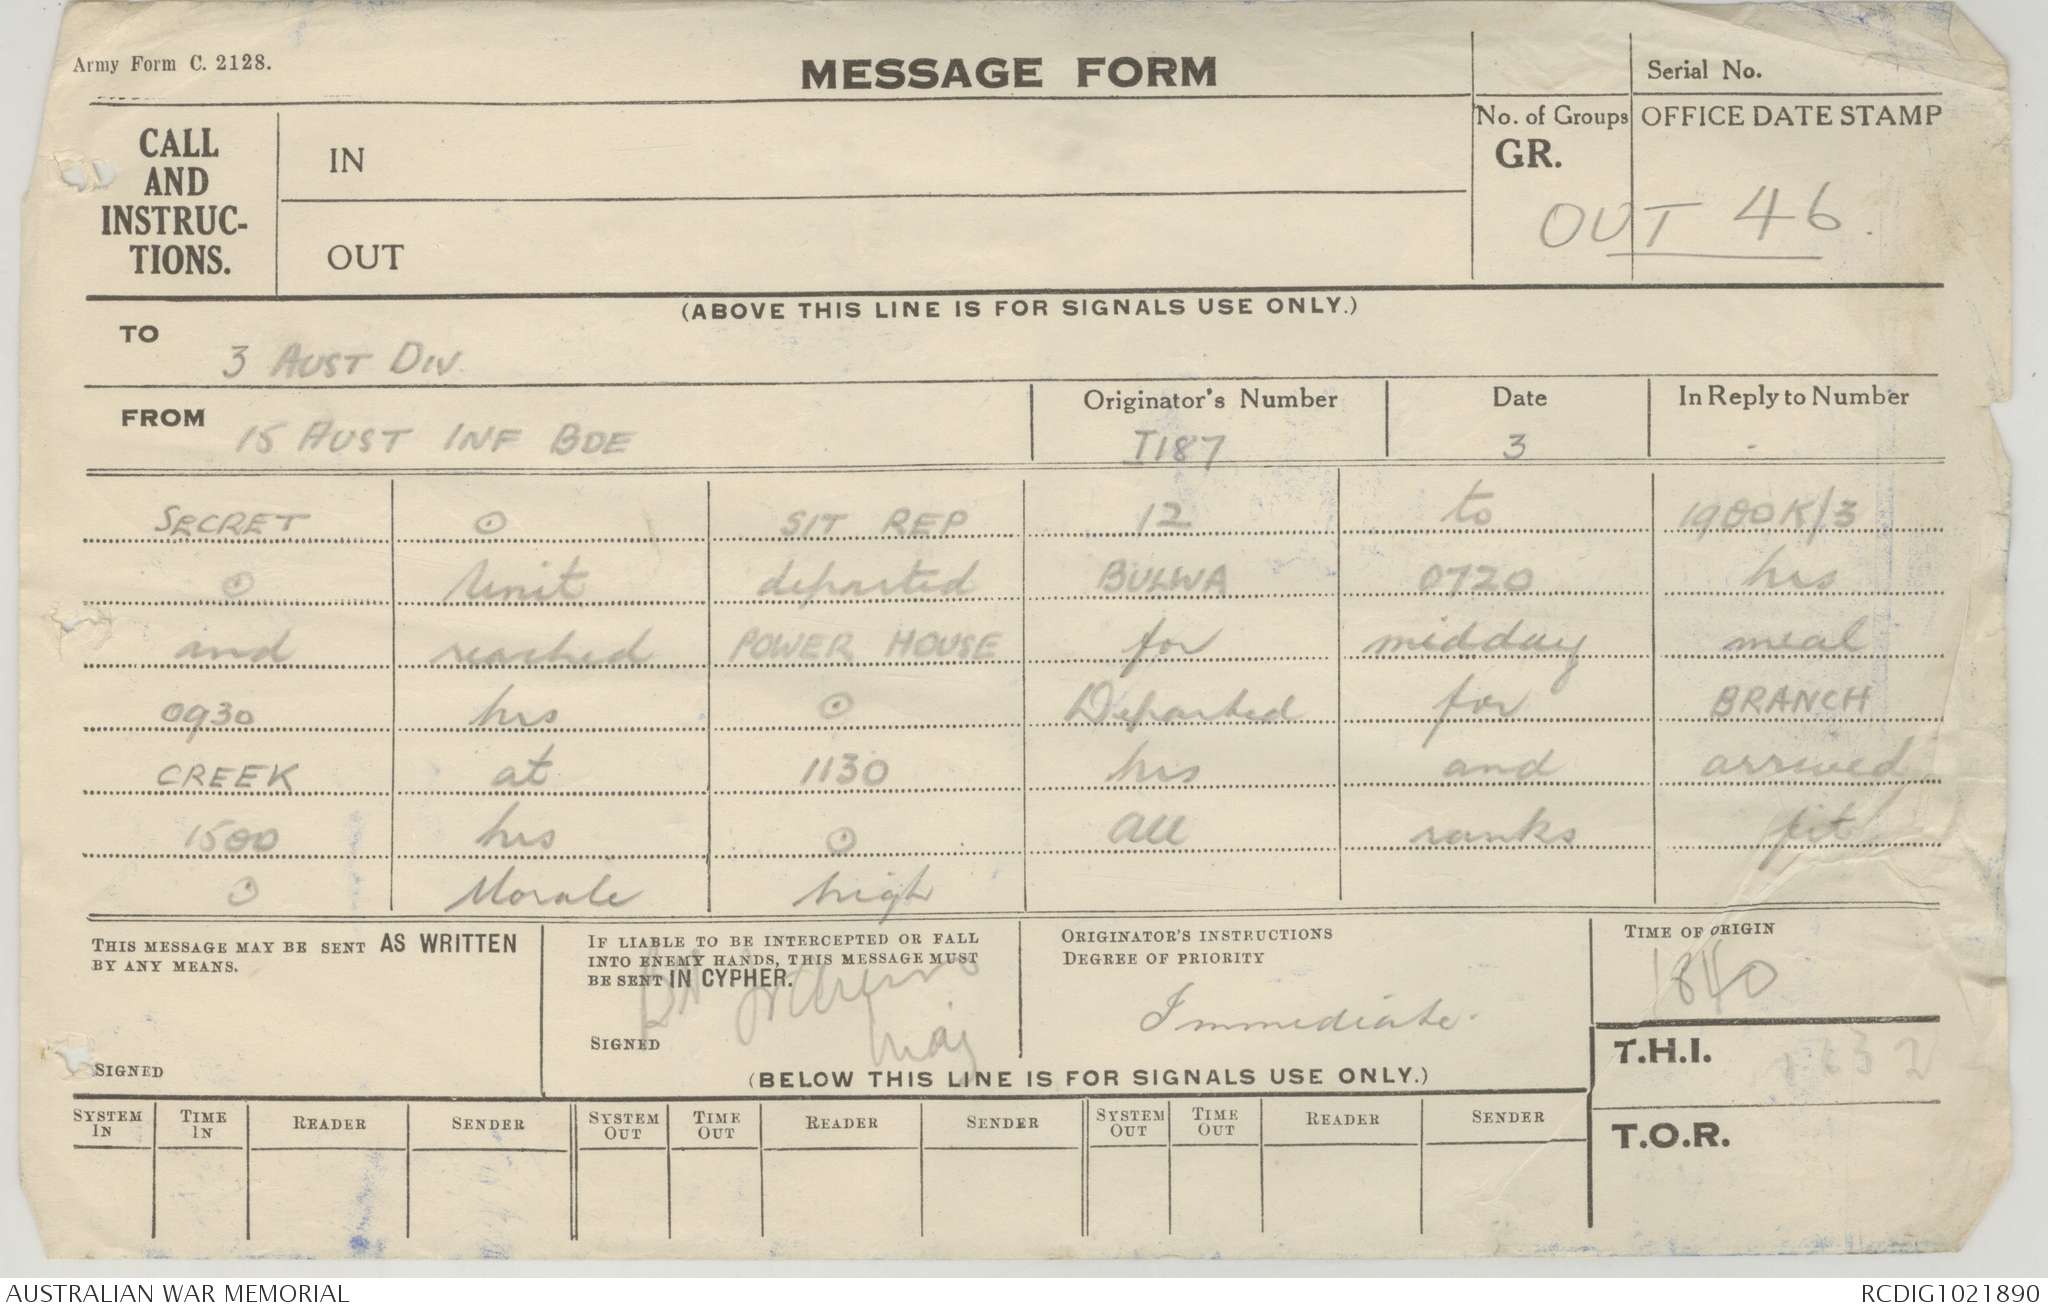 Army Form C. 2128.
MESSAGE FORM
Serial No.
CALL AND INSTRUC-TIONS.
IN
OUT
No. of Groups
GR.
OFFICE DATE STAMP
OUT 46.
(ABOVE THIS LINE IS FOR SIGNALS USE ONLY.)
TO
3 AUST DIV.
FROM
15 AUST INF BDE
Originator's Number
I187
Date
3
In Reply to Number
-
SECRET ⊙ SIT REP 12 to 1900K/3
⊙ Unit departed BULWA 0720 hrs
and reached POWER HOUSE for midday meal
0930 hrs ⊙ Departed for BRANCH
CREEK at 1130 hrs and arrived
1500 hrs ⊙ All ranks fit
⊙ Morale high
THIS MESSAGE MAY BE SENT AS WRITTEN
BY ANY MEANS.
SIGNED
IF LIABLE TO BE INTERCEPTED OR FALL
INTO ENEMY HANDS, THIS MESSAGE MUST
BE SENT IN CYPHER.
SIGNED
Maj
ORIGINATOR'S INSTRUCTIONS
DEGREE OF PRIORITY
Immediate.
TIME OF ORIGIN
1840
T.H.I.
T.O.R.
(BELOW THIS LINE IS FOR SIGNALS USE ONLY.)
SYSTEM IN TIME IN READER SENDER SYSTEM OUT TIME OUT READER SENDER SYSTEM OUT TIME OUT READER SENDER
AUSTRALIAN WAR MEMORIAL
RCDIG1021890